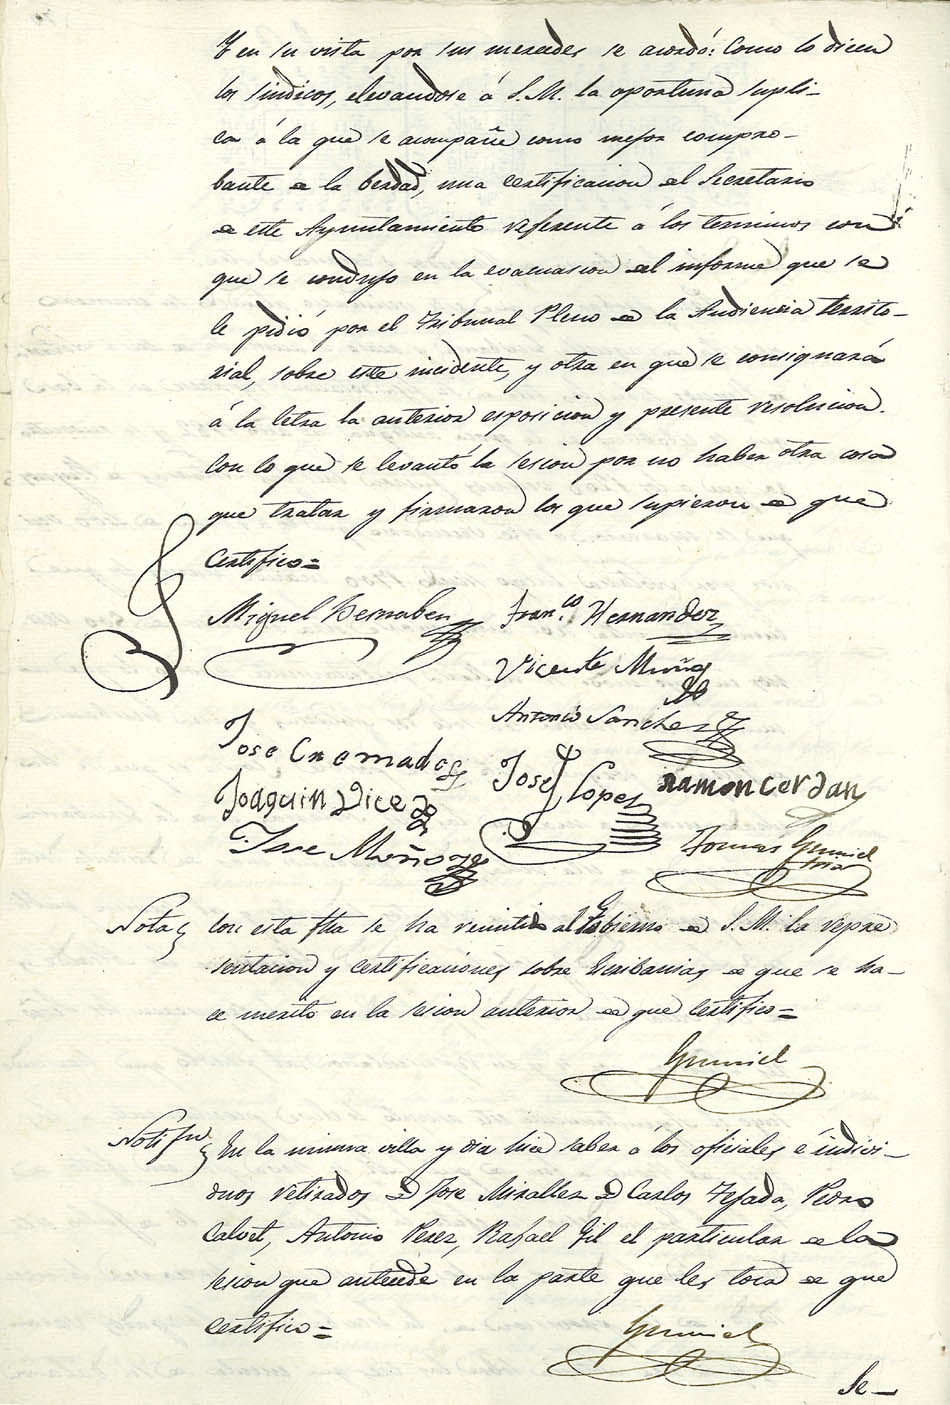 Y en su vista por sus mercedes se acordó: Como lo dicen
los sindicos, elevandose á S.M. la oportuna supli-
ca á la que se acompañe como mejor compro-
bante de la berdad, una certificacion del Secretario
de este Ayuntamiento referente á los terminos con
que se condujo en la evacuasion del informe que se
le pidió por el Tribunal Pleno de la Audiencia territo-
rial, sobre este incidente, y otra en que se consignará
á la letra la anterior esposicion y presente resolucion.
Con lo que se levantó la sesion por no haber otra cosa
que tratar y firmaron los que supieron de que
Certifico=
Miguel Bernabeu
Fran.co Hernandez
Vicente Muñoz
Antonio Sanchez
Jose Cremades
Jose Lopez
Ramon Cerdan
Joaquin Vicedo
Jose Muñoz
Tomás Gumiel
Srio
Nota
Con esta fha se ha remitido al Gobierno de S.M. la repre
sentacion y certificaciones sobre Escribanias de que se ha-
ce merito en la sesion anterior de que certifico=
Gumiel
Notif.n
En la misma villa y dia hice saber á los oficiales é indivi-
duos retirados D. Jose Miralles D. Carlos Tejada, Pedro
Calvet, Antonio Perez, Rafael Gil el particular de la
sesion que antecede en la parte que les toca de que
Certifico=
Gumiel
Se-